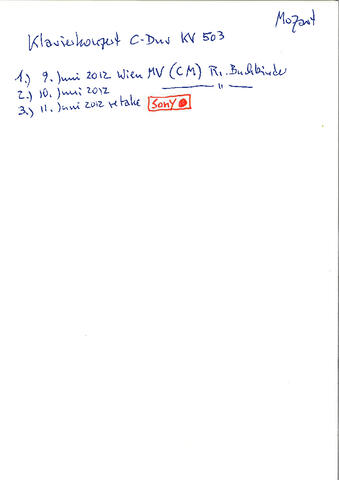 Mozart
Klavierkonzert C-Dur KV 503
1.) 9. Juni 2012 Wien MV (CM) R. Buchbinder
2.) 10. Juni 2012 — " —
3.) 11. Juni 2012 retake SONY